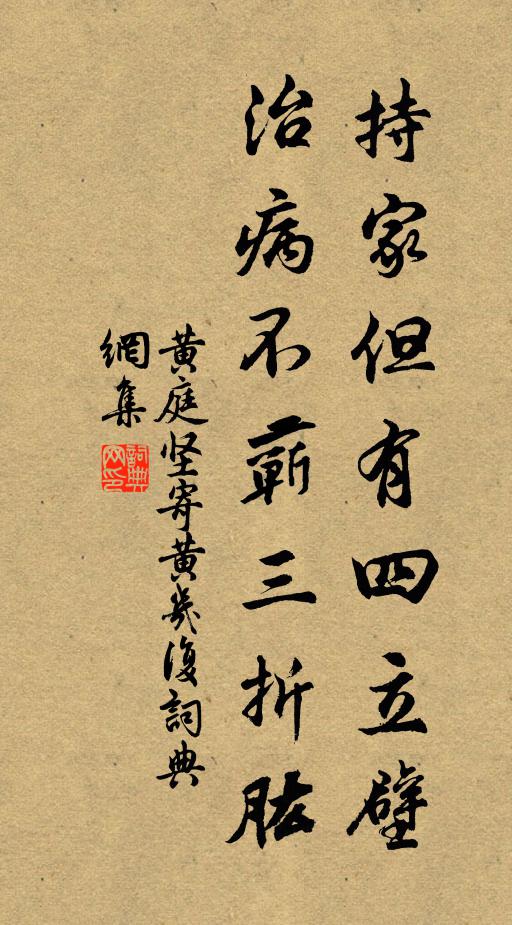 持家但有四立壁
治病不蘄三折肱
黄庭坚寄黄幾復詞典
網集
詞典
网印